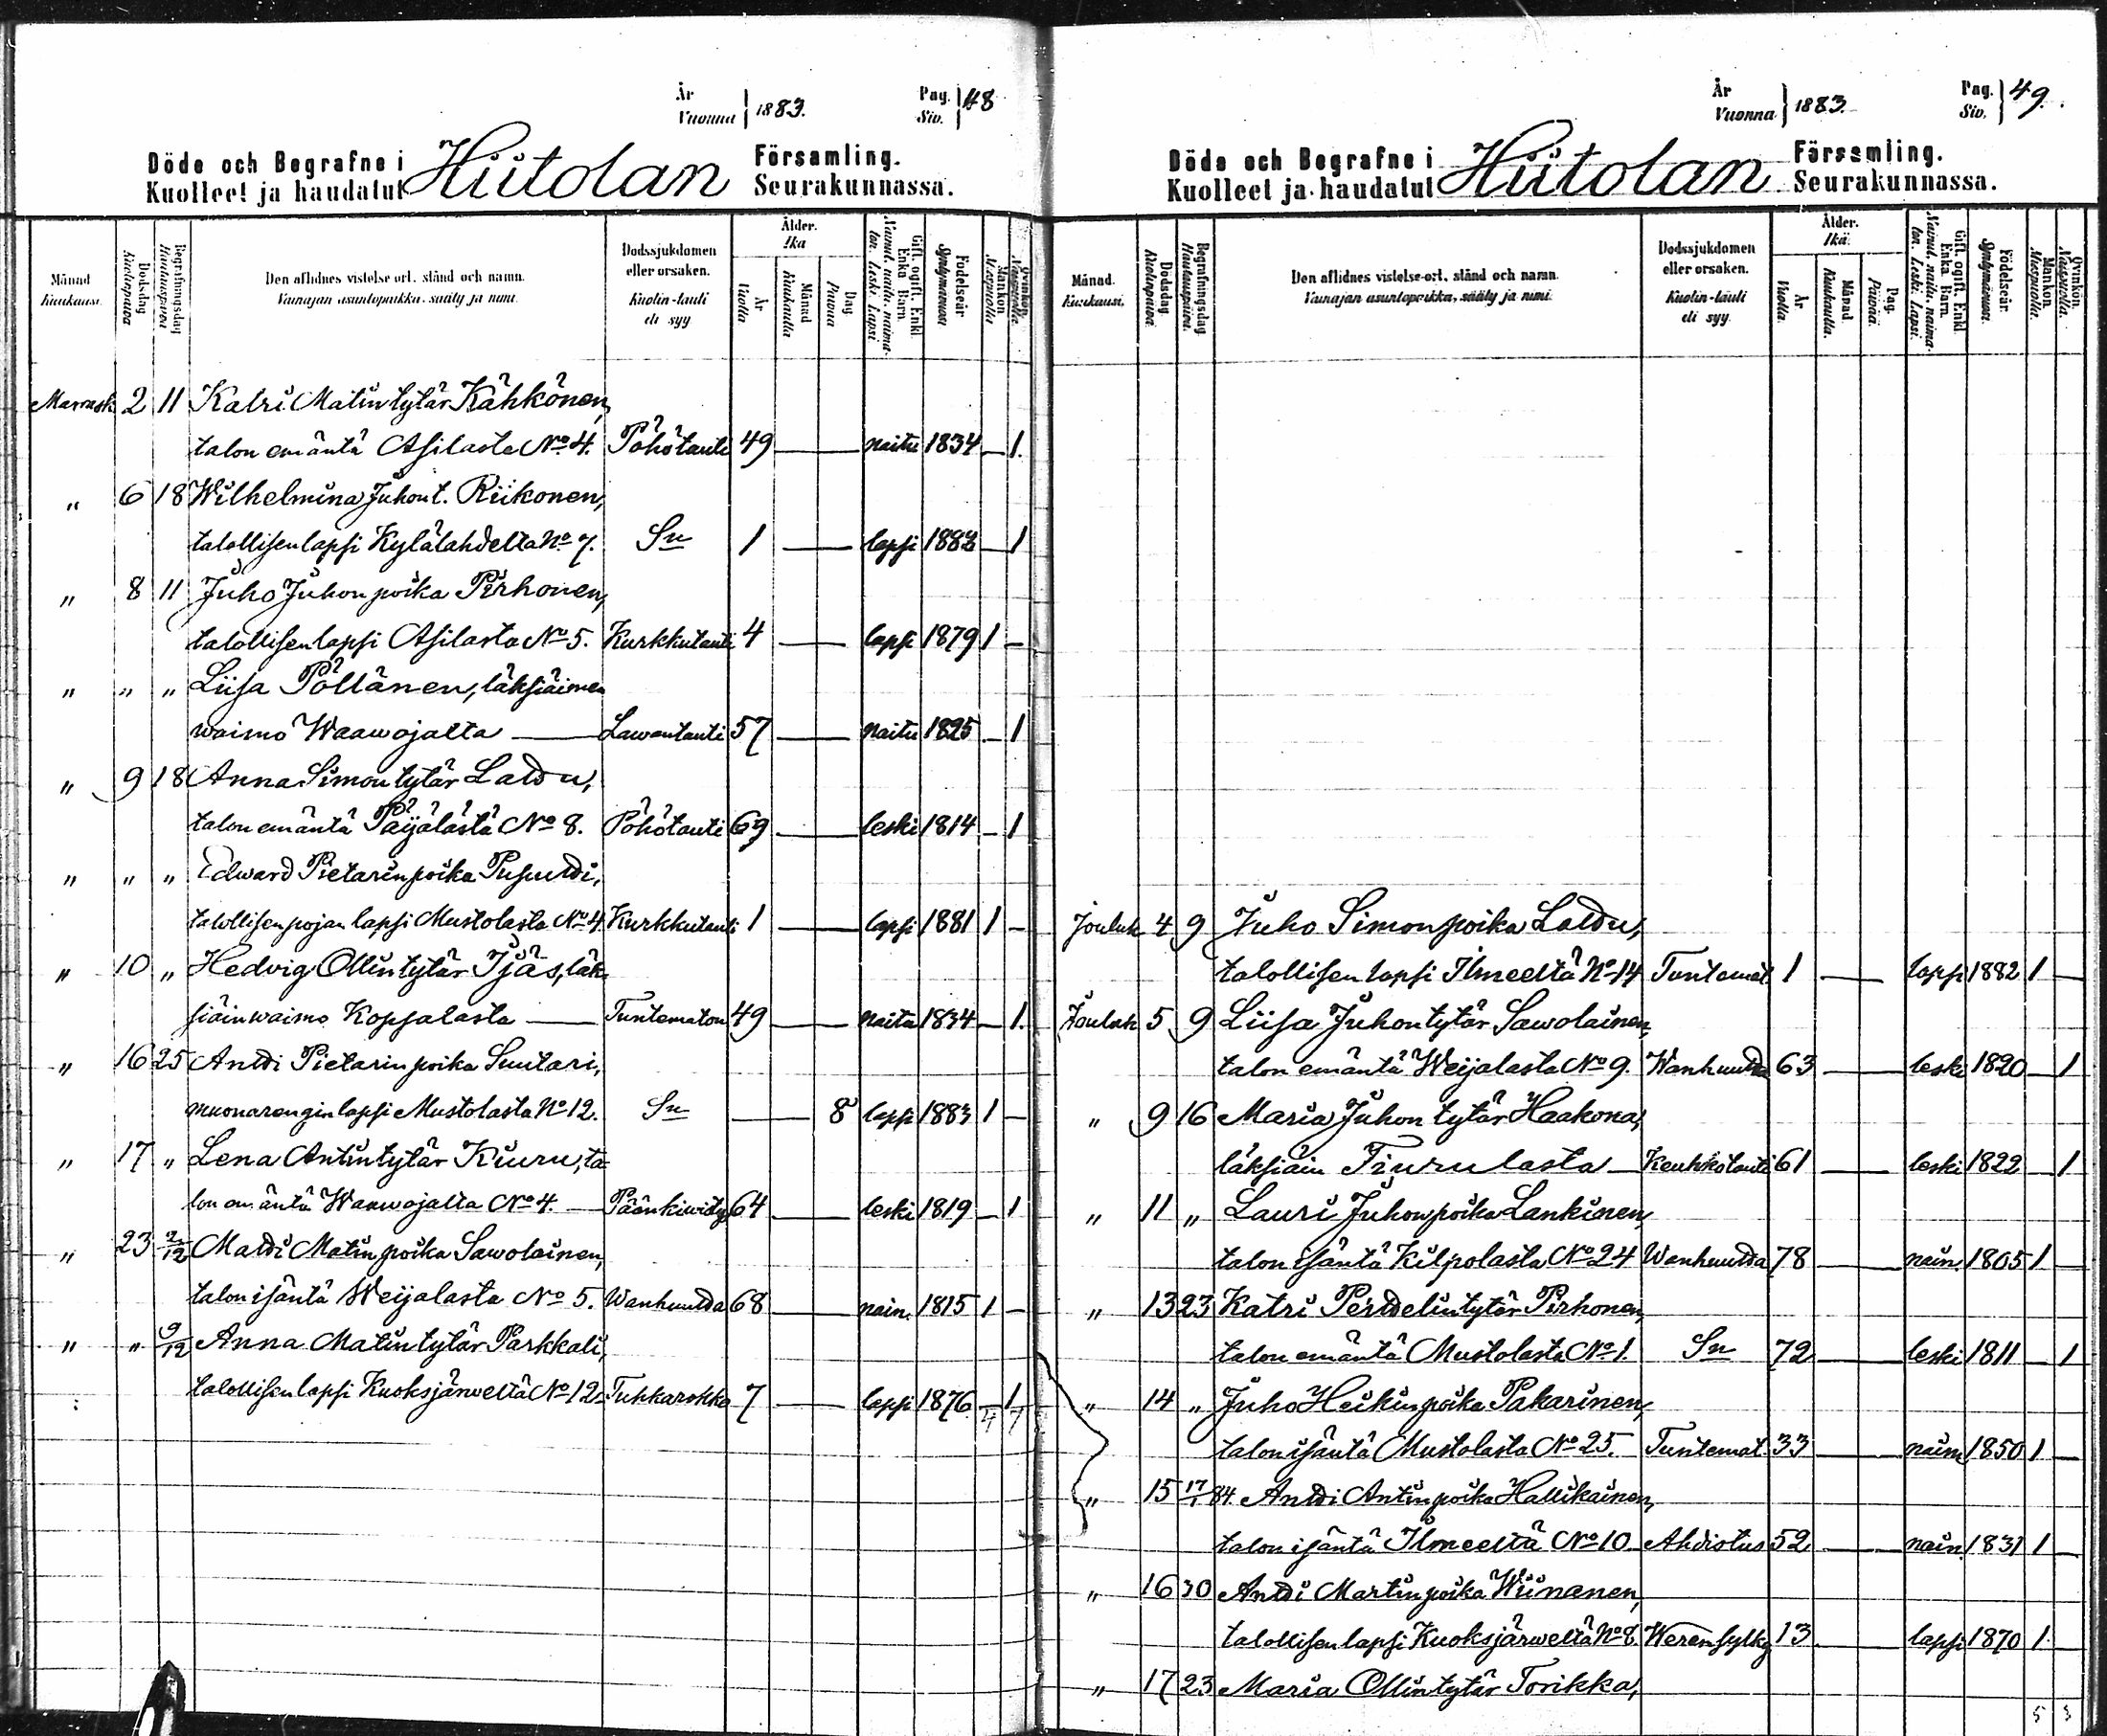 År
Vuonna 1883.
Pag.
Siv. 48
Döde och Begrafne i
Kuolleet ja haudatut
Hiitolan
Församling.
Seurakunnassa.
Månad
Kuukausi.
Dödsdag
Kuolinpäivä
Begrafningsdag
Hautauspäivä
Den aflidnes vistelse ort, stånd och namn.
Vainajan asuntopaikka, sääty ja nimi.
Dödssjukdomen
eller orsaken.
Kuolin-tauti
eli syy
Ålder.
Ikä
År
Vuotta
Månad
Kuukautta
Dag
Päivää
Gift. ogift. Enkl.
Enka. Barn.
Nainut. naitu. naima-
ton. Leski. Lapsi
Födelseår
Syntymävuosi
Mankön
Miespuolta
Qvinkön
Naispuolta
Marrask 2 11 Katri Matintytär Kähkönen,
talon emäntä Asilasta No 4. Pöhötauti 49 — naitu 1834 — 1.
" 6 18 Wilhelmina Juhont. Riikonen,
talollisen lapsi Kylälahdelta No 7. Sn 1 — lapsi 1882 — 1
" 8 11 Juho Juhonpoika Pirhonen,
talollisen lapsi Asilasta No 5. Kurkkutauti 4 — lapsi 1879 1 —
" " " Liisa Pöllänen, läksiäimen
waimo Waawojalta — Lawantauti 57 — naitu 1825 — 1
" 9 18 Anna Simontytär Lattu,
talon emäntä Päijälästä No 8. Pöhötauti 69 — leski 1814 — 1
" " " Edward Pietarinpoika Pusutti,
talollisen pojan lapsi Mustolasta No 4 Kurkkutauti 1 — lapsi 1881 1 —
" 10 " Hedvig Ollintytär Ijäs, läk-
siäin waimo Kopsalasta — Tuntematon 49 — naitu 1834 — 1.
" 16 25 Antti Pietarinpoika Suutari,
muonarengin lapsi Mustolasta No 12. Sn — 8 lapsi 1883 1 —
" 17 " Lena Antintytär Kiuru, ta-
lon emäntä Waawojalta No 4. — Päänkiwisty 64 — leski 1819 — 1
" 23 2/12 Matti Matinpoika Sawolainen,
talon isäntä Weijalasta No 5. Wanhuutta 68 — nain. 1815 1 —
" " 9/12 Anna Matintytär Parkkali,
talollisen lapsi Kuoksjärweltä No 12 Tuhkarokko 7 — lapsi 1876 — 1
4 7
År
Vuonna 1883.
Pag.
Siv. 49.
Döde och Begrafne i
Kuolleet ja haudatut
Hiitolan
Församling.
Seurakunnassa.
Månad.
Kuukausi.
Dödsdag.
Kuolinpäivä.
Begrafningsdag.
Hautauspäivä.
Den aflidnes vistelse-ort, stånd och namn.
Vainajan asuntopaikka, sääty ja nimi.
Dödssjukdomen
eller orsaken.
Kuolin-tauti
eli syy.
Ålder.
Ikä.
År
Vuotta.
Månad.
Kuukautta.
Dag.
Päivää.
Gift. ogift. Enkl.
Enka. Barn.
Nainut. naitu. naima-
ton. Leski. Lapsi.
Födelseår.
Syntymävuosi.
Mankön.
Miespuolta.
Qvinkön.
Naispuolta.
Jouluk 4 9 Juho Simonpoika Lattu,
talollisen lapsi Ilmeeltä No 14 Tuntemat. 1 — lapsi 1882 1 —
Jouluk 5 9 Liisa Juhontytär Sawolainen,
talon emäntä Weijalasta No 9. Wanhuutta 63 — leski 1820 — 1
" 9 16 Maria Juhontytär Haakona,
läksiäin Tiurulasta — Keuhkotauti 61 — leski 1822 — 1
" 11 " Lauri Juhonpoika Lankinen
talon isäntä Kilpolasta No 24 Wanhuutta 78 — nain. 1805 1 —
" 13 23 Katri Perttelintytär Pirhonen,
talon emäntä Mustolasta No 1. Sn 72 — leski 1811 — 1
" 14 " Juho Heikinpoika Pakarinen,
talon isäntä Mustolasta No 25. Tuntemat. 33 — nain. 1850 1 —
" 15 17/1 84. Antti Antinpoika Hallikainen,
talon isäntä Ilmeeltä No 10 Ahdistus 52 — nain. 1831 1 —
" 16 30 Antti Martinpoika Wiinanen,
talollisen lapsi Kuoksjärweltä No 8. Werensylky 13 — lapsi 1870 1
" 17 23 Maria Ollintytär Torikka,
5 3